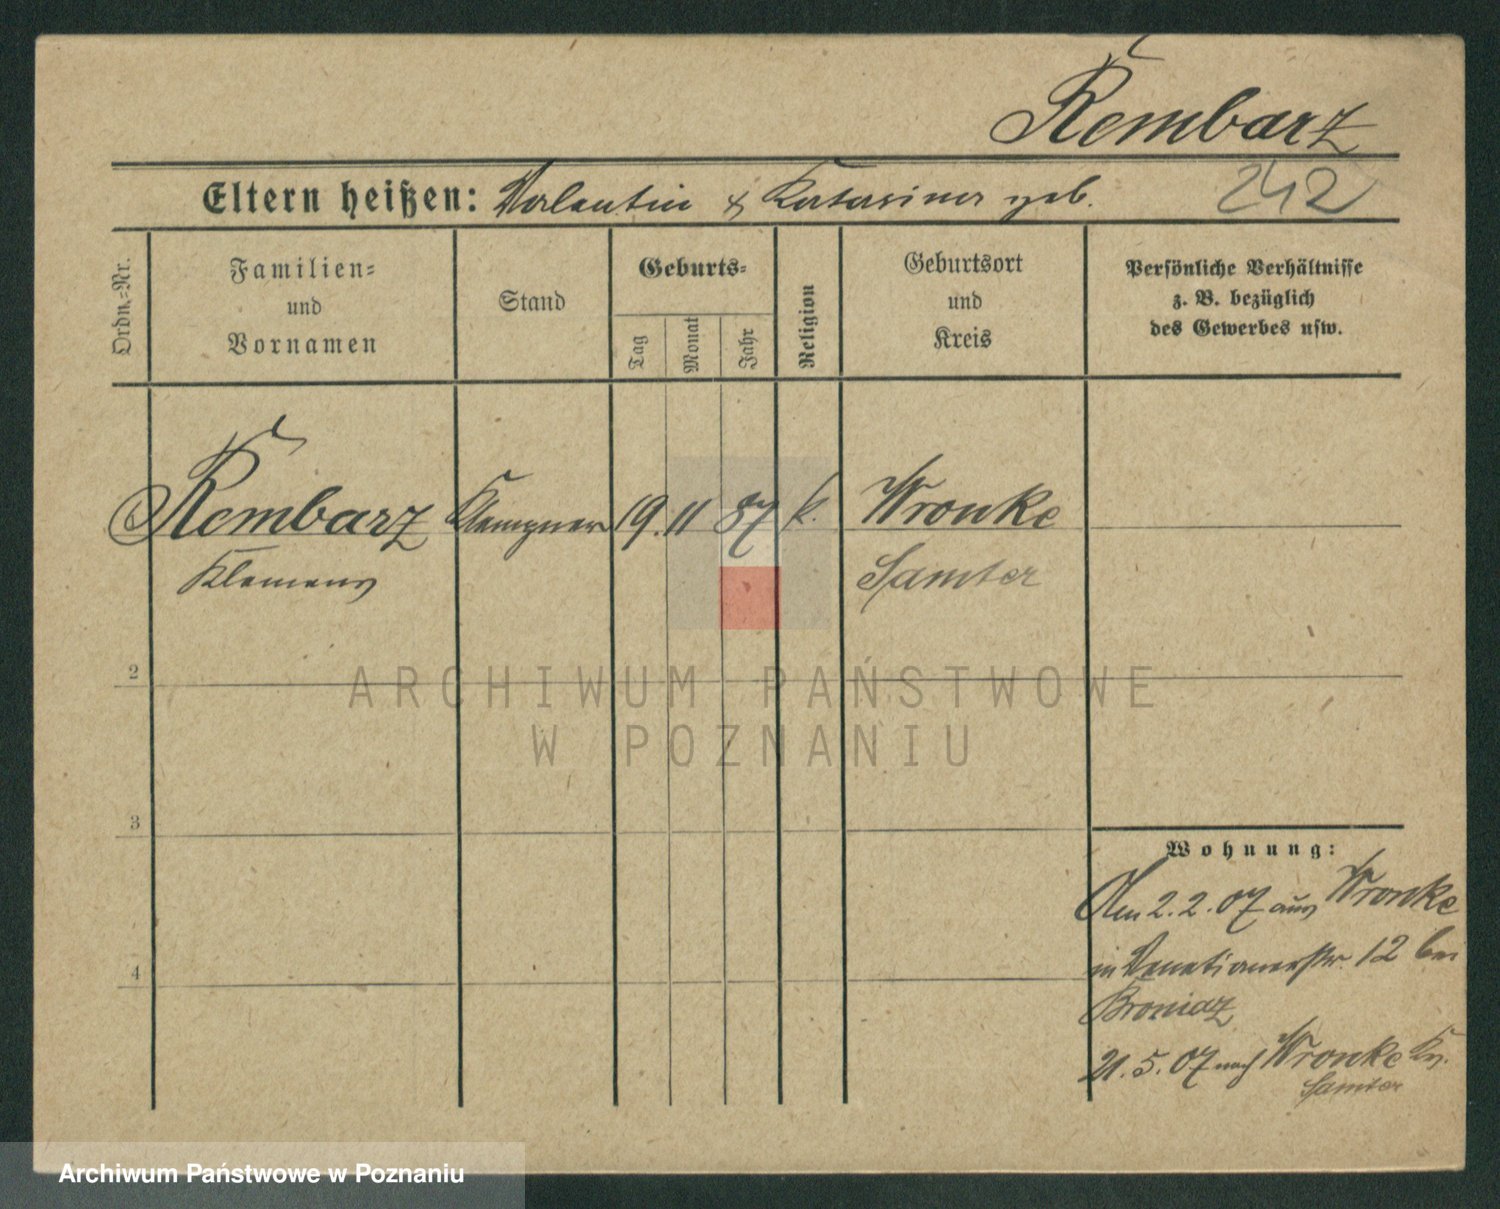 Rembarz
242
Eltern heißen: Valentin & Katarina geb.
Ordn.-Nr.
Familien-
und
Vornamen
Stand
Geburts-
Tag
Monat
Jahr
Religion
Geburtsort
und
Kreis
Persönliche Verhältnisse
z. B. bezüglich
des Gewerbes usw.
Rembarz Klempner 19. 11 87 k. Wronke
Klemens Samter
2
3
4
Wohnung:
Am 2. 2. 07 aus Wronke
in Venetianerstr. 12 bei
Broniarz
21. 5. 07 nach Wronke Kr.
Samter
ARCHIWUM PAŃSTWOWE
W POZNANIU
Archiwum Państwowe w Poznaniu